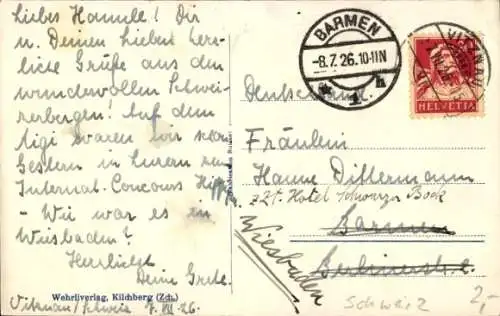 Liebes Hannele! Dir
u. Deinen Lieben herz-
lichste Grüße aus den
wundervollen Schwei-
zerbergen! Auf dem
Rigi waren wir schon
Gestern in Luzern zum
Internat. Concours Hipp.
- Wie war es in
Wiesbaden?
Herzlichst
Deine Grete.
Wehrliverlag, Kilchberg (Zch.)
Vitznau/Schweiz 7. VII. 26.
BARMEN
-8.7.26.10-11N
* 1 h
VITZNAU
HELVETIA
Deutschland.
Fräulein
Hanne Dittermann
z Zt. Hotel Schwarzer Bock
Barmen
Wiesbaden
Berlinerstr.
Schweiz
2,-